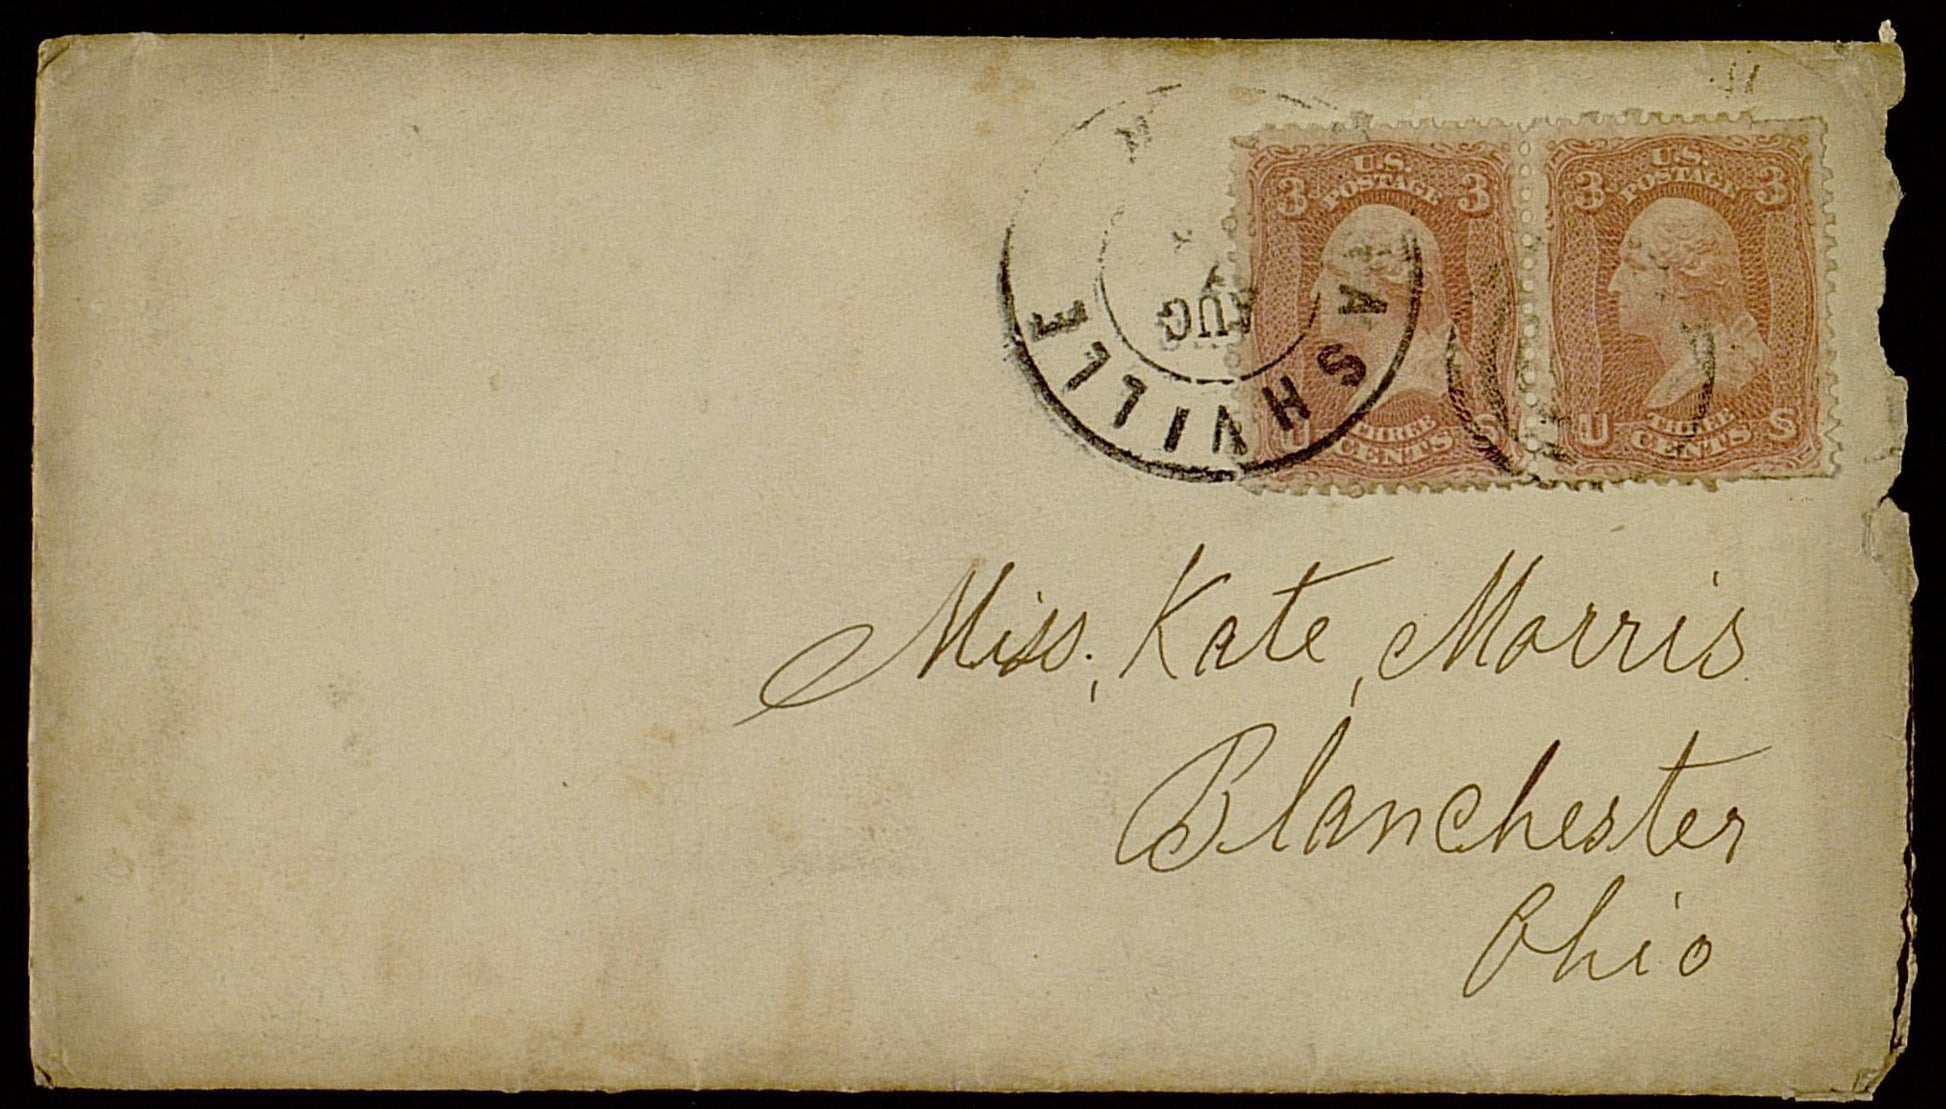 ASHVILLE
AUG
U.S. POSTAGE
3 3
THREE CENTS
U S
U.S. POSTAGE
3 3
THREE CENTS
U S
Miss. Kate Morris
Blanchester
Ohio